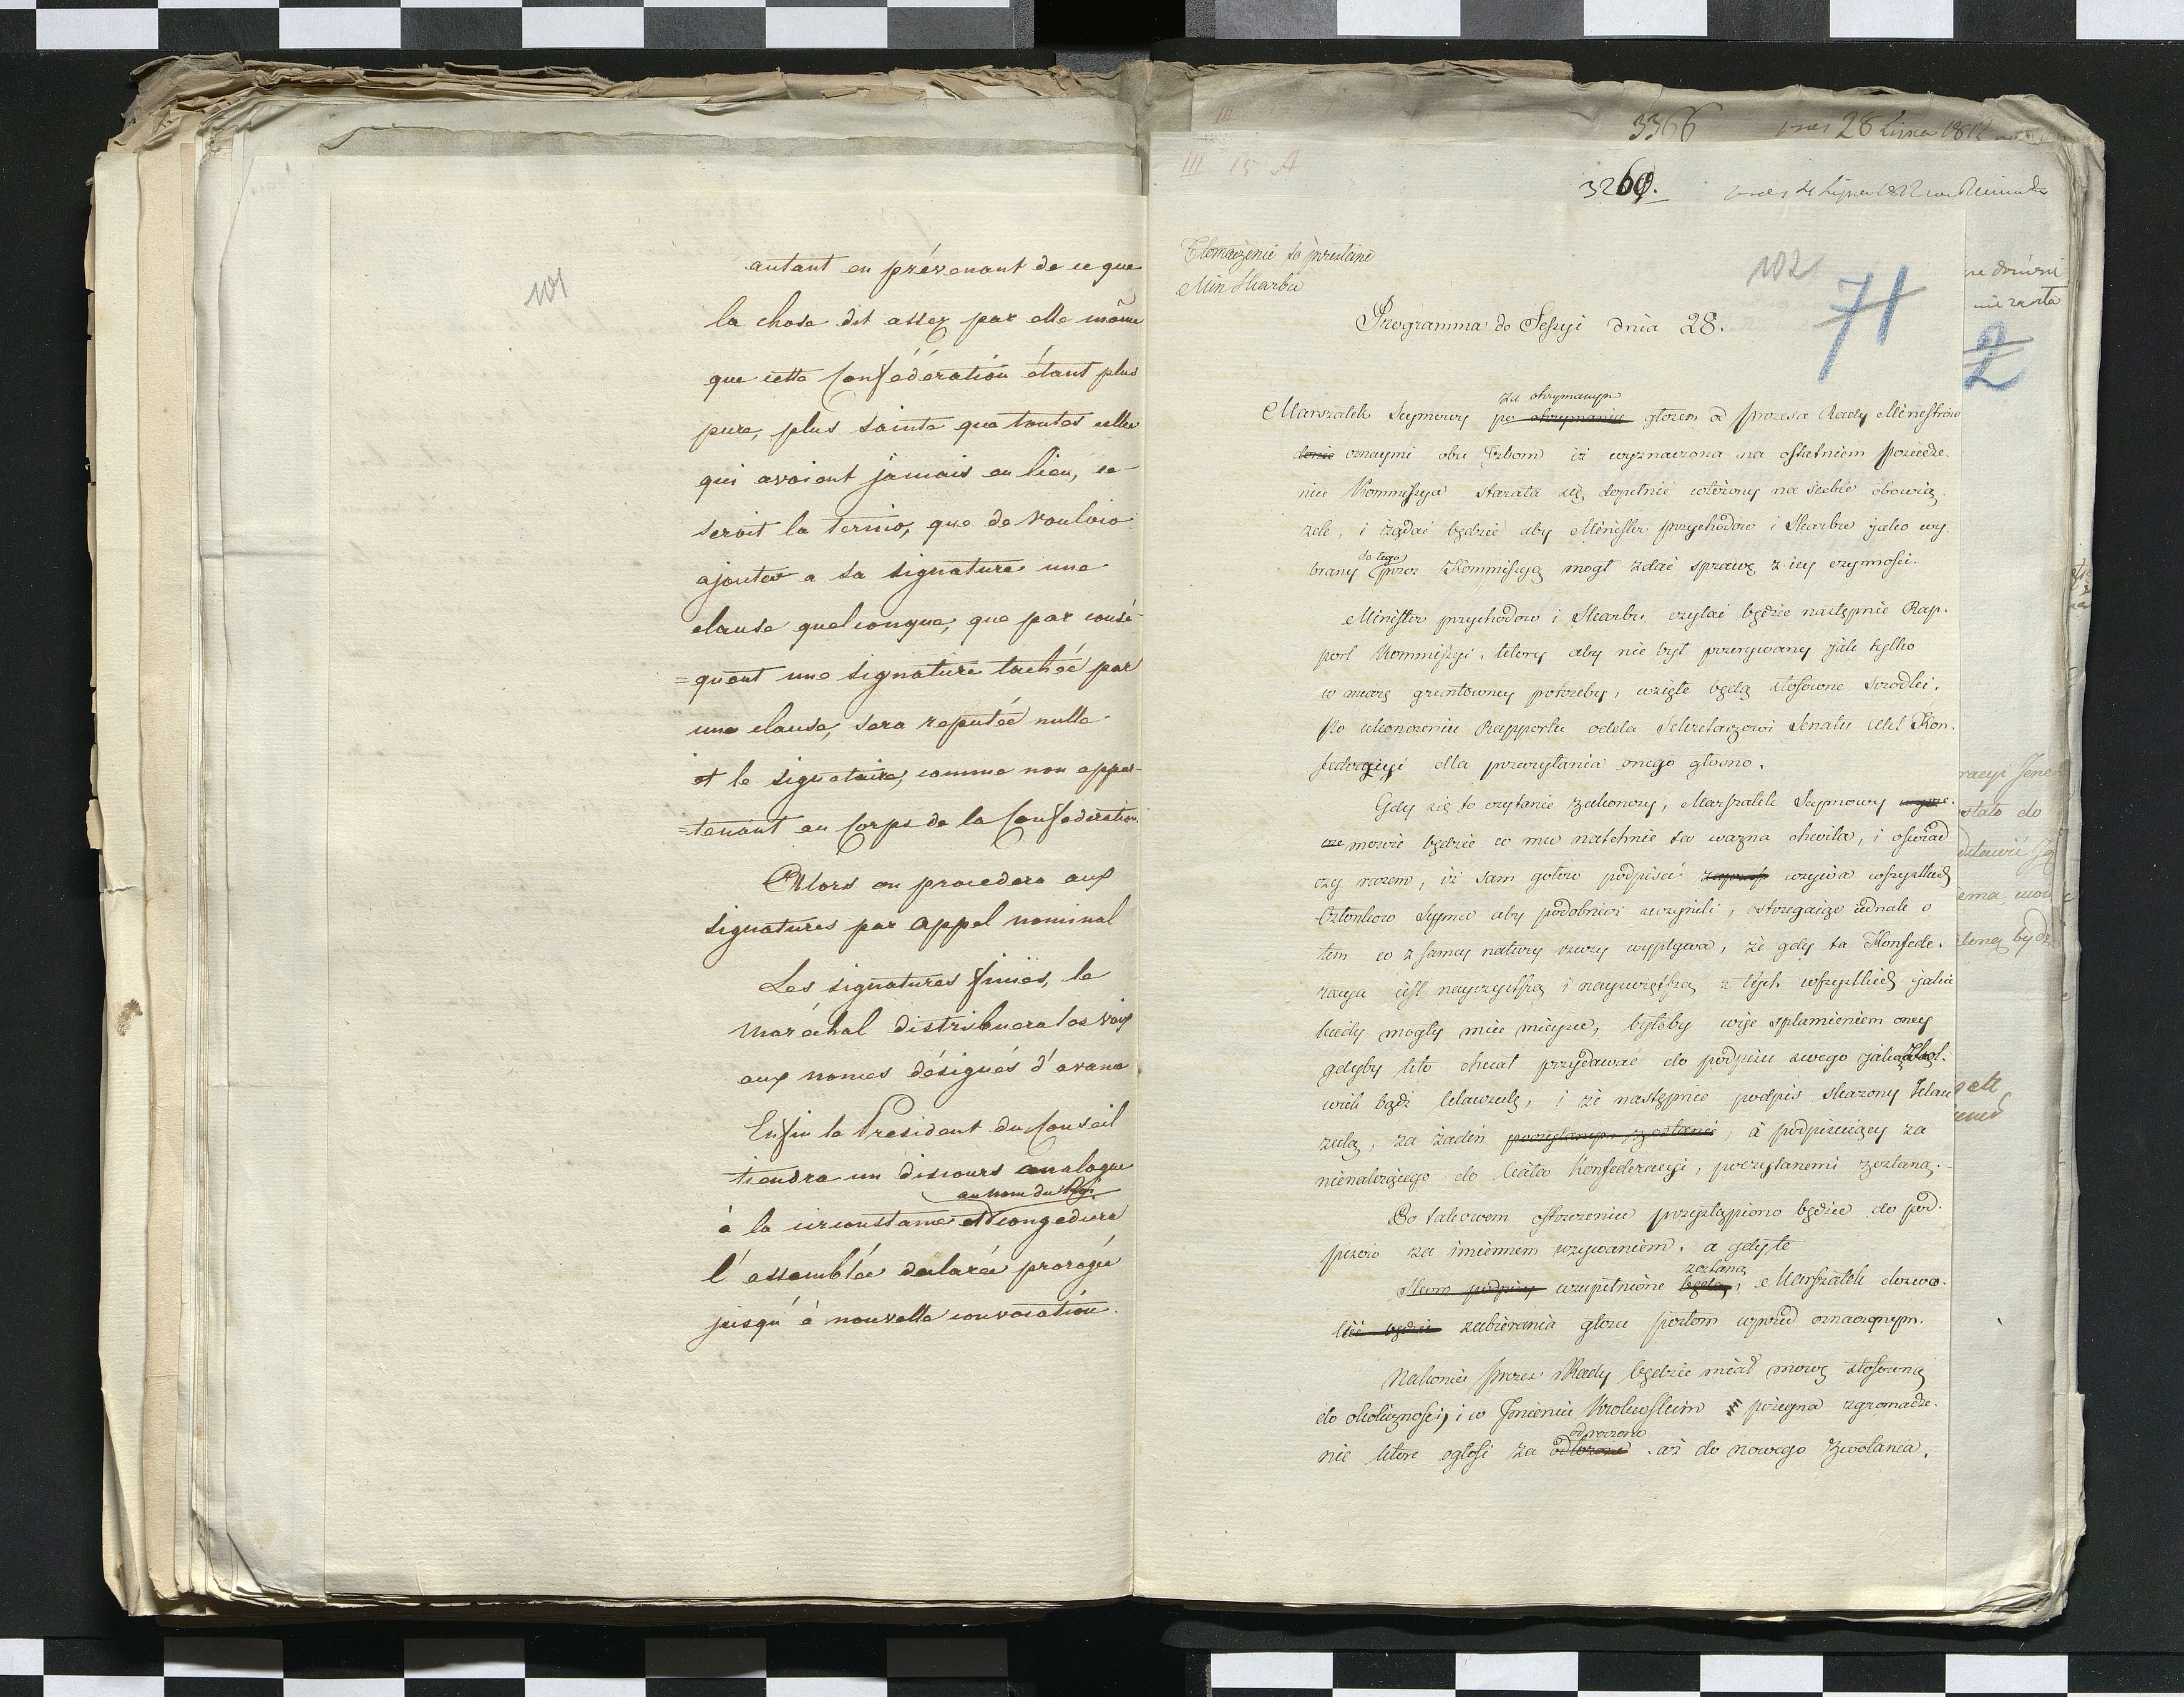 101
autant en prévenant de ce que
la chose dit assez par elle même
que cette Confédération étant plus
pure, plus sainte que toutes celles
qui avoient jamais eu lieu, ce
seroit la ternir, que de vouloir
ajouter a sa signature une
clause quelconque, que par consé-
=quent une signature tachée par
une clause, sera reputée nulle
et le signataire, comme non appar-
=tenant au Corps de la Confederation.
Alors on procedera aux
signatures par appel nominal
Les signatures finies, le
maréchal distribuera les voix
aux nonces désignés d'avance
Enfin le President du Conseil
tiendra un discours analogue
au nom du Roi
à la circonstance et congediera
l'assemblée declarée prorogée
jusqu'à nouvelle convocation.
3366 28 Lipca 1812
III 15 A
3260.
Tłomaczenie to przesłane
Min Skarbu
102
71
2
Programma do Sessyi dnia 28.
za otrzymanym
Marszałek Seymowy po otrzymaniu głosem od Prezesa Rady Ministrów
oznaymi obu Izbom iż wyznaczona na ostatniem posiedze-
niu Kommissya starała się dopełnić włożony na siebie obowią-
zek, i żądać będzie aby Minister przychodów i Skarbu jako wy-
do tego
brany przez Kommissyą mogł zdać sprawę z iey czynności.
Minister przychodow i Skarbu czytać będzie następnie Rap-
port Kommissyi, ktory aby nie był przerywany jak tylko
w miarę gruntowney potrzeby, wzięte będą stosowne srodki.
Po ukonczeniu Rapportu odda Sekretarzowi Senatu Akt Kon-
federacyi dla przeczytania onego głosno.
Gdy się to czytanie zakonczy, Marszałek Seymowy
mowić będzie co mu natchnie ta wazna chwila, i oswiad
czy razem, iż sam gotów podpisać wzywa wszystkich
Członkow Seymu aby podobnież uczynili, ostrzegaiąc iednak o
tem co z samey natury rzeczy wypływa, że gdy ta Konfede-
racya iest nayczystszą i nayswiętszą z tych wszystkich jakie
kiedy mogły mieć mieysce, byłoby więc splamieniem oney
gdyby kto chciał przydawać do podpisu swego jakążkol-
wiek bądź klawzulę, i że następnie podpis skazony klau
zulą, za żaden poczytanym zostanie, a podpisuiący za
nienależącego do Ciała Konfederacyi, poczytanemi zostaną.
Po takowem ostrzeżeniu przystąpiono będzie do pod-
pisow za imiennem wzywaniem. a gdy te
zostaną
Skoro podpisy uzupełnione będą, Marszałek dozwo-
lić będzie zabierania głosu posłom wprzód oznaczonym.
Nakoniec Prezes Rady będzie miał mowę stosowną
do okoliczności, i w Imieniu Krolewskim pożegna zgromadze-
odroczone
nie ktore ogłosi za odłożone aż do nowego zwołania.